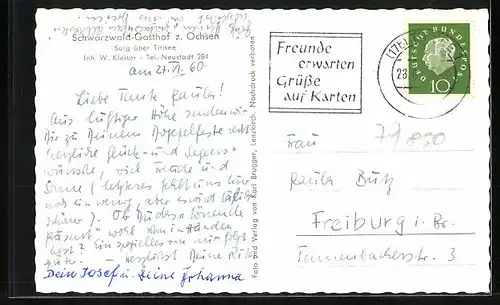 Schwarzwald-Gasthof z. Ochsen
Saig über Titisee
Inh. W. Kleiser - Tel. Neustadt 284
am 27.VI.60
Liebe Tante Paula!
Aus luftiger Höhe senden wir
Dir zu Deinem Doppelfeste recht
herzliche Glück- und Segens-
wünsche, viel Freude und
Sonne (letzteres fehlt uns hier
ein wenig, aber es wird täglich
schöner). Ob Du das "tönende
Präsent" wohl schon in Händen
hast? Ein spezielles von mir folgt
später. Herzlichst Deine Rita
Dein Josef u. Deine Johanna
Foto und Verlag von Karl Brugger, Lenzkirch. Nachdruck verboten
Freunde
erwarten
Grüße
auf Karten
(17b)
28.
DEUTSCHE BUNDESPOST
10
79850
Frau
Paula Butz
Freiburg i. Br.
Tennenbacherstr. 3